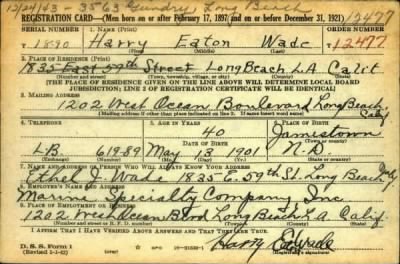 12/24/43 - 3563 Gundry Long Beach
REGISTRATION CARD—(Men born on or after February 17, 1897 and on or before December 31, 1921) 12477
SERIAL NUMBER 1. NAME (Print) ORDER NUMBER
1890 Harry Eaton Wade 12477
(First) (Middle) (Last)
2. PLACE OF RESIDENCE (Print)
1835 East 59th Street Long Beach L.A. Calif
(Number and street) (Town, township, village, or city) (County) (State)
[THE PLACE OF RESIDENCE GIVEN ON THE LINE ABOVE WILL DETERMINE LOCAL BOARD
JURISDICTION; LINE 2 OF REGISTRATION CERTIFICATE WILL BE IDENTICAL]
3. MAILING ADDRESS
1202 West Ocean Boulevard Long Beach Calif
4. TELEPHONE 5. AGE IN YEARS 6. PLACE OF BIRTH
40 Jamestown
DATE OF BIRTH
LB 61989 May 13 1901 N.D.
7. NAME AND ADDRESS OF PERSON WHO WILL ALWAYS KNOW YOUR ADDRESS
Ethel J. Wade 1835 E. 59th St. Long Beach
8. EMPLOYER'S NAME AND ADDRESS
Marine Specialty Company, Inc
9. PLACE OF EMPLOYMENT OR BUSINESS
1202 West Ocean Blvd Long Beach L.A. Calif.
(Number and street or R. F. D. number) (Town) (County) (State)
I AFFIRM THAT I HAVE VERIFIED ABOVE ANSWERS AND THAT THEY ARE TRUE.
D. S. S. Form 1
(Revised 1-1-42) (over) Harry E Wade